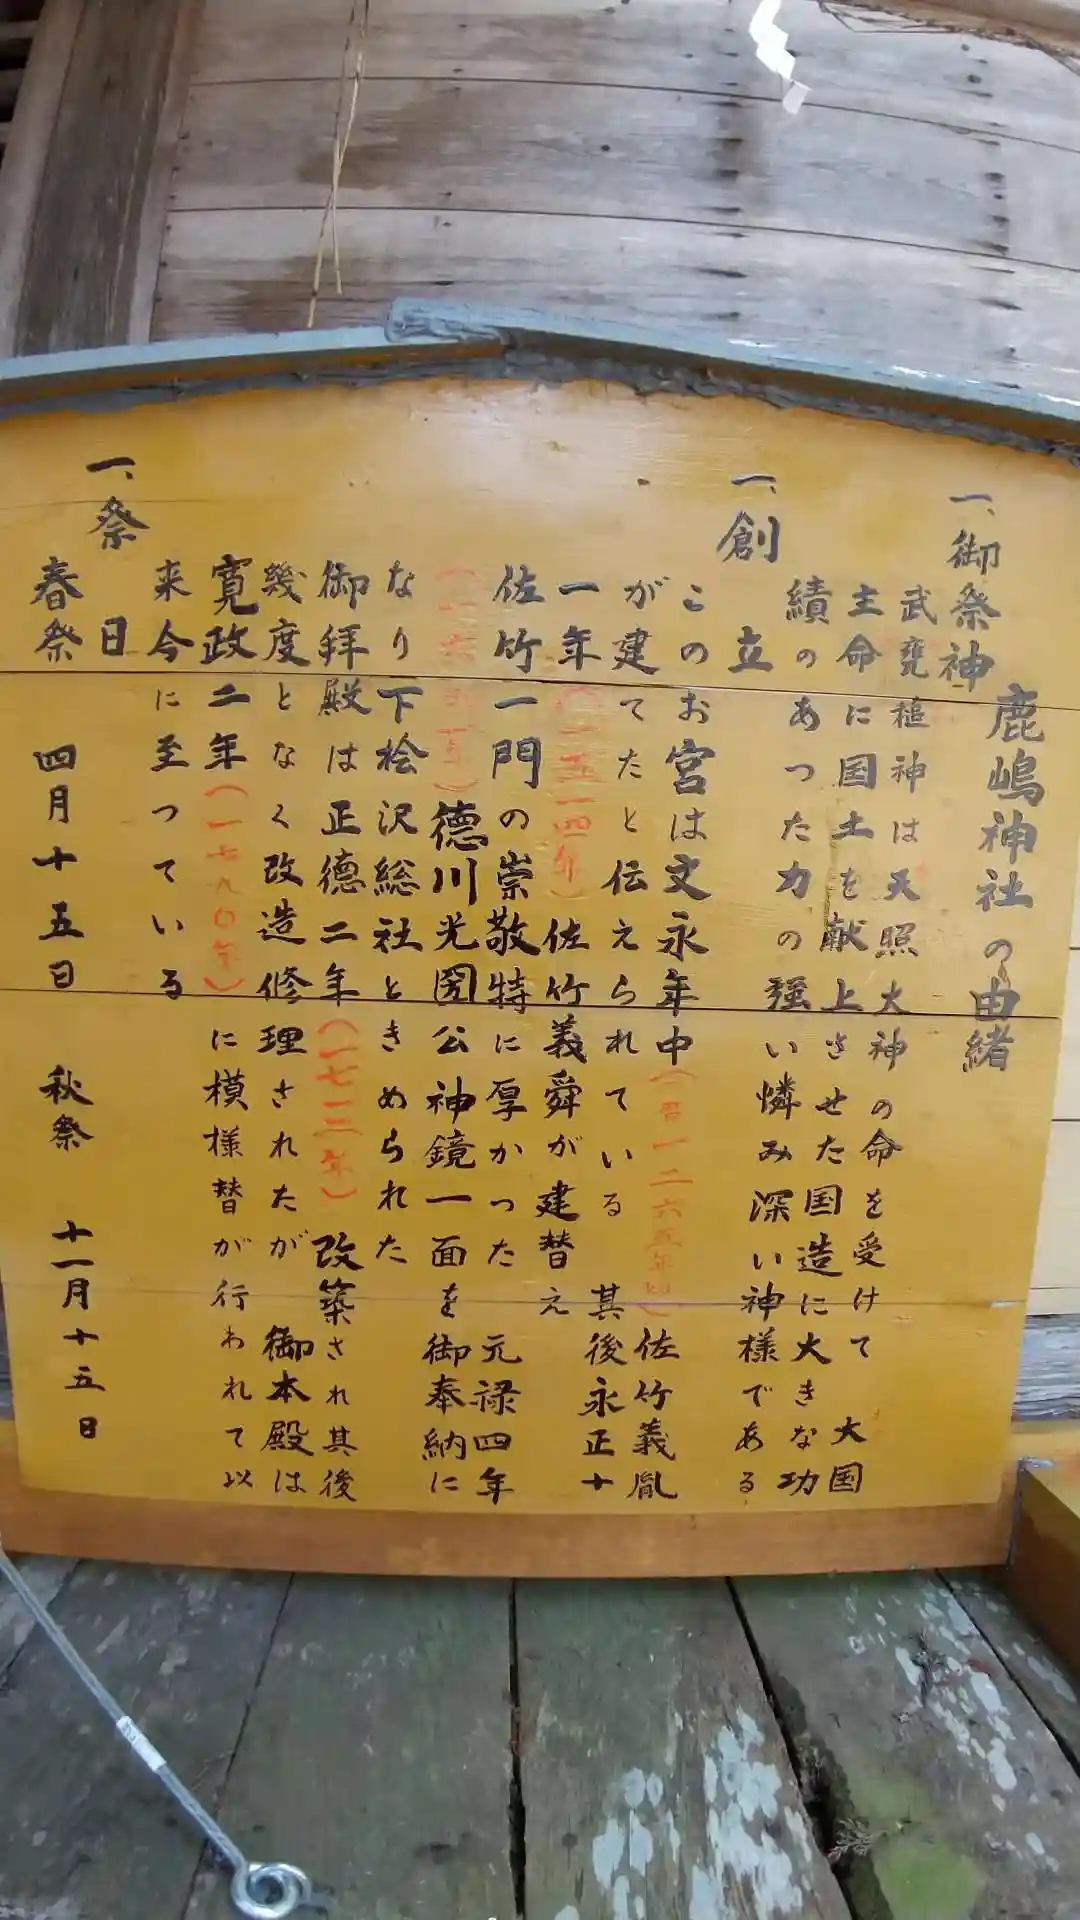 鹿嶋神社の由緒
一、御祭神
武甕槌神は天照大神の命を受けて 大国
主命に国土を献上させた国造に大きな功
績のあつた力の强い憐み深い神様である
一、創立
このお宮は文永年中(西一二六五年頃)佐竹義胤
が建てたと伝えられている 其後永正十
一年(一五一四年)佐竹義舜が建替え
佐竹一門の崇敬特に厚かつた 元禄四年
(一六九一年)徳川光圀公神鏡一面を御奉納に
なり下桧沢総社ときめられた
御拝殿は正徳二年(一七一三年)改築され其後
幾度となく改造修理されたが 御本殿は
寛政二年(一七九〇年)に模様替が行われて以
来今に至つている
一、祭日
春祭 四月十五日 秋祭 十一月十五日